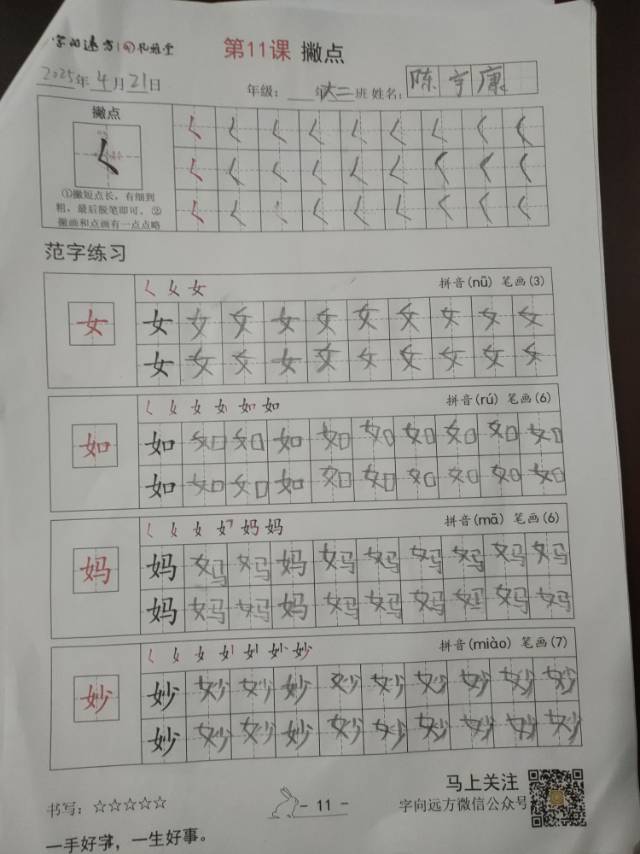 字向远方
第11课 撇点
2025年4月21日
年级:大二班 姓名:陈宇康
撇点
①撇短点长,有细到
粗,最后脱笔即可。②
撇画和点画有一点点略
范字练习
拼音(nǚ) 笔画(3)
女 女 女 女 女 女 女 女 女 女 女
女 女 女 女 女 女 女 女 女 女
拼音(rú) 笔画(6)
如 如 如 如 如 如 如 如 如 如 如
如 如 如 如 如 如 如 如 如 如
拼音(mā) 笔画(6)
妈 妈 妈 妈 妈 妈 妈 妈 妈 妈 妈
妈 妈 妈 妈 妈 妈 妈 妈 妈 妈
拼音(miào) 笔画(7)
妙 妙 妙 妙 妙 妙 妙 妙 妙 妙 妙
妙 妙 妙 妙 妙 妙 妙 妙 妙 妙
马上关注
书写:☆☆☆☆☆
- 11 -
字向远方微信公众号
一手好字,一生好事。